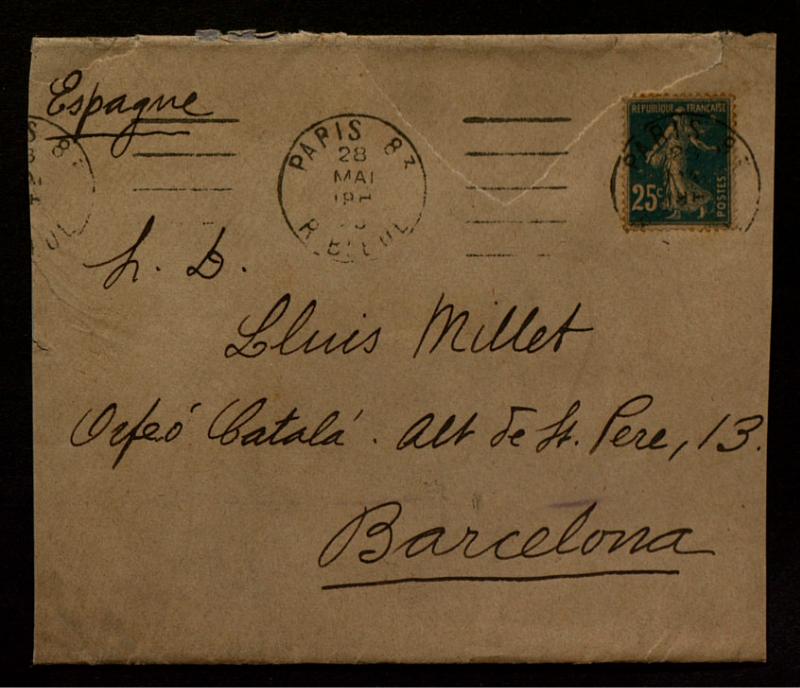 Espagne
PARIS 8
28
MAI
RÉPUBLIQUE FRANÇAISE
25c
POSTES
PARIS
h. D.
Lluis Millet
Orfeó Catalá. Alt de St. Pere, 13.
Barcelona